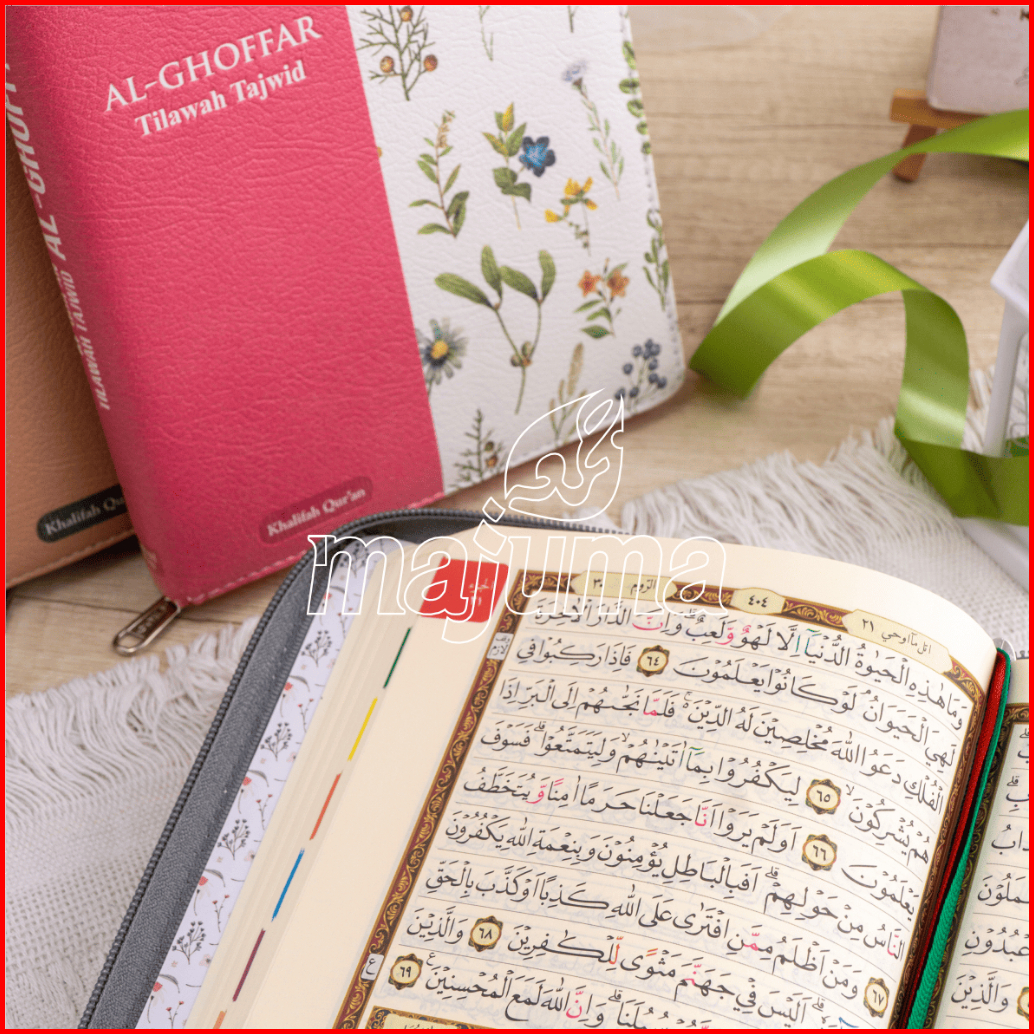 AL-GHOFFAR
Tilawah Tajwid
TILAWAH TAJWID
Khalifah Qur'an
Khalifah Qu
majuma
٤٠٤
اتل مآ اوحي ٢١
وَمَا هٰذِهِ الْحَيٰوةُ الدُّنْيَآ اِلَّا لَهْوٌ وَّلَعِبٌۗ وَاِنَّ الدَّارَ الْاٰخِرَةَ
لَهِيَ الْحَيَوَانُۘ لَوْ كَانُوْا يَعْلَمُوْنَ ٦٤ فَاِذَا رَكِبُوْا فِى
الْفُلْكِ دَعَوُا اللّٰهَ مُخْلِصِيْنَ لَهُ الدِّيْنَ ەۚ فَلَمَّا نَجّٰىهُمْ اِلَى الْبَرِّ اِذَا
هُمْ يُشْرِكُوْنَۙ ٦٥ لِيَكْفُرُوْا بِمَآ اٰتَيْنٰهُمْۙ وَلِيَتَمَتَّعُوْاۗ فَسَوْفَ
يَعْلَمُوْنَ ٦٦ اَوَلَمْ يَرَوْا اَنَّا جَعَلْنَا حَرَمًا اٰمِنًا وَّيُتَخَطَّفُ
النَّاسُ مِنْ حَوْلِهِمْۗ اَفَبِالْبَاطِلِ يُؤْمِنُوْنَ وَبِنِعْمَةِ اللّٰهِ يَكْفُرُوْنَ
٦٧ وَمَنْ اَظْلَمُ مِمَّنِ افْتَرٰى عَلَى اللّٰهِ كَذِبًا اَوْ كَذَّبَ بِالْحَقِّ
اَلَيْسَ فِيْ جَهَنَّمَ مَثْوًى لِّلْكٰفِرِيْنَ ٦٨ وَالَّذِيْنَ
وَاِنَّ اللّٰهَ لَمَعَ الْمُحْسِنِيْنَ ٦٩